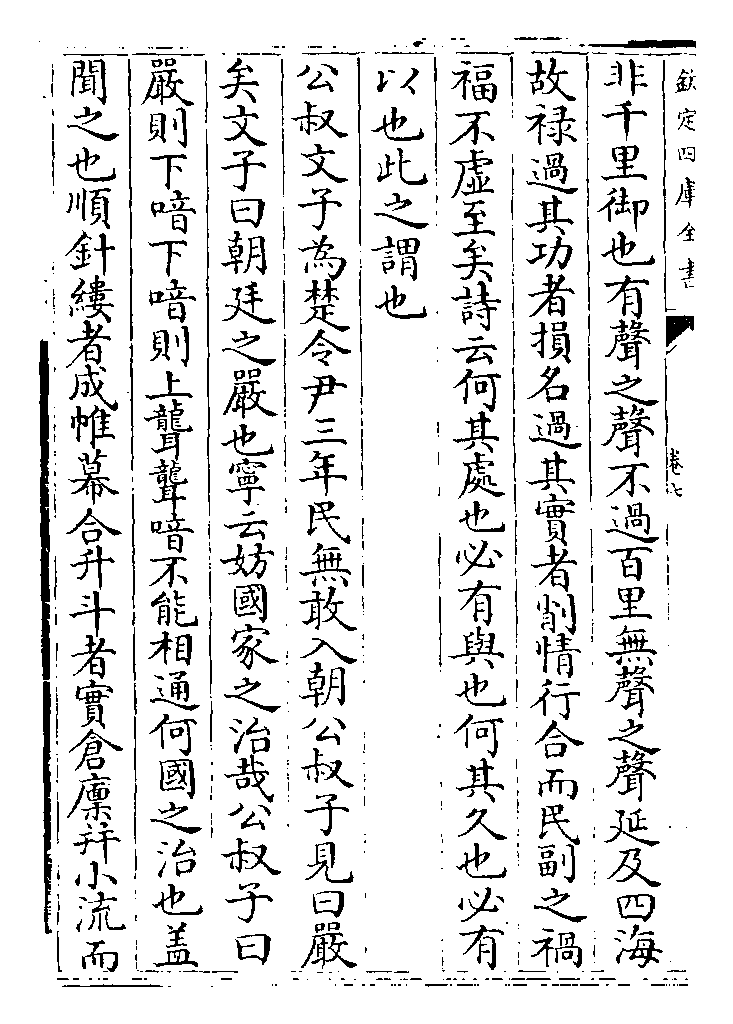 欽定四庫全書
卷七
非千里御也有聲之聲不過百里無聲之聲延及四海
故禄過其功者損名過其實者削情行合而民副之禍
福不虛至矣詩云何其處也必有與也何其久也必有
以也此之謂也
公叔文子為楚令尹三年民無敢入朝公叔子見曰嚴
矣文子曰朝廷之嚴也寧云妨國家之治哉公叔子曰
嚴則下喑下喑則上聾聾喑不能相通何國之治也盖
聞之也順針縷者成帷幕合升斗者實倉廩并小流而